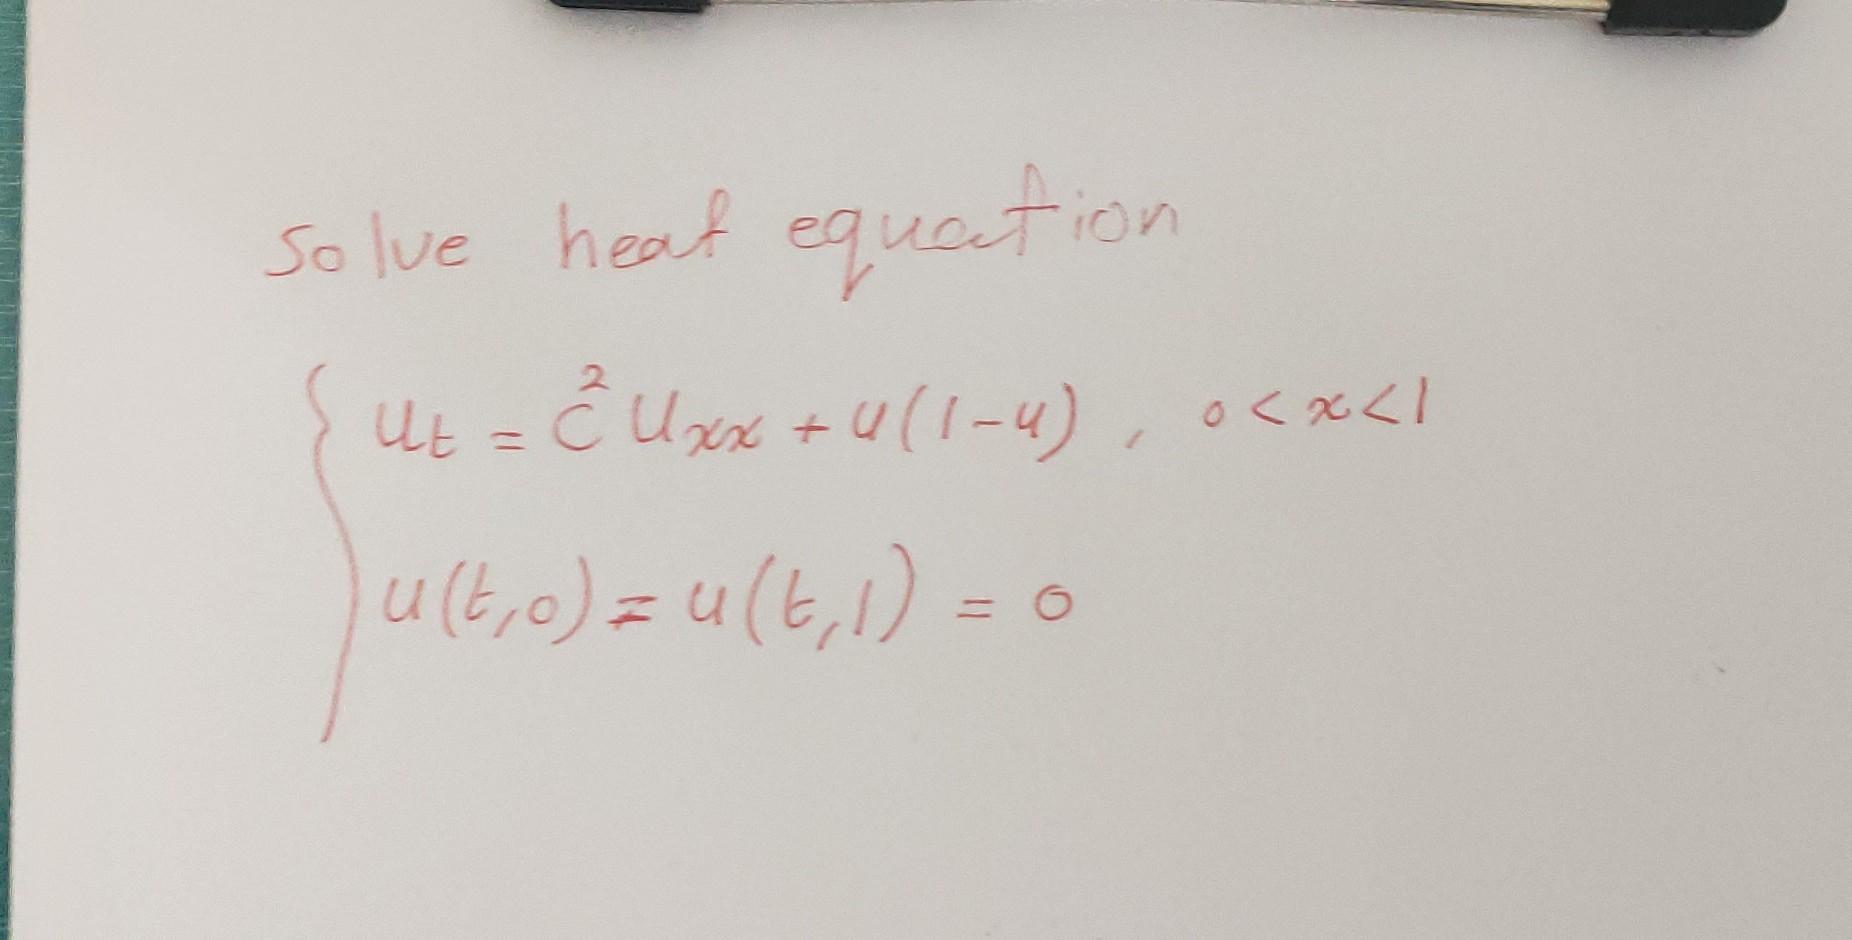 Solve heat equation
{ u_t = c² u_xx + u(1-u) , 0 < x < 1
u(t,0) = u(t,1) = 0